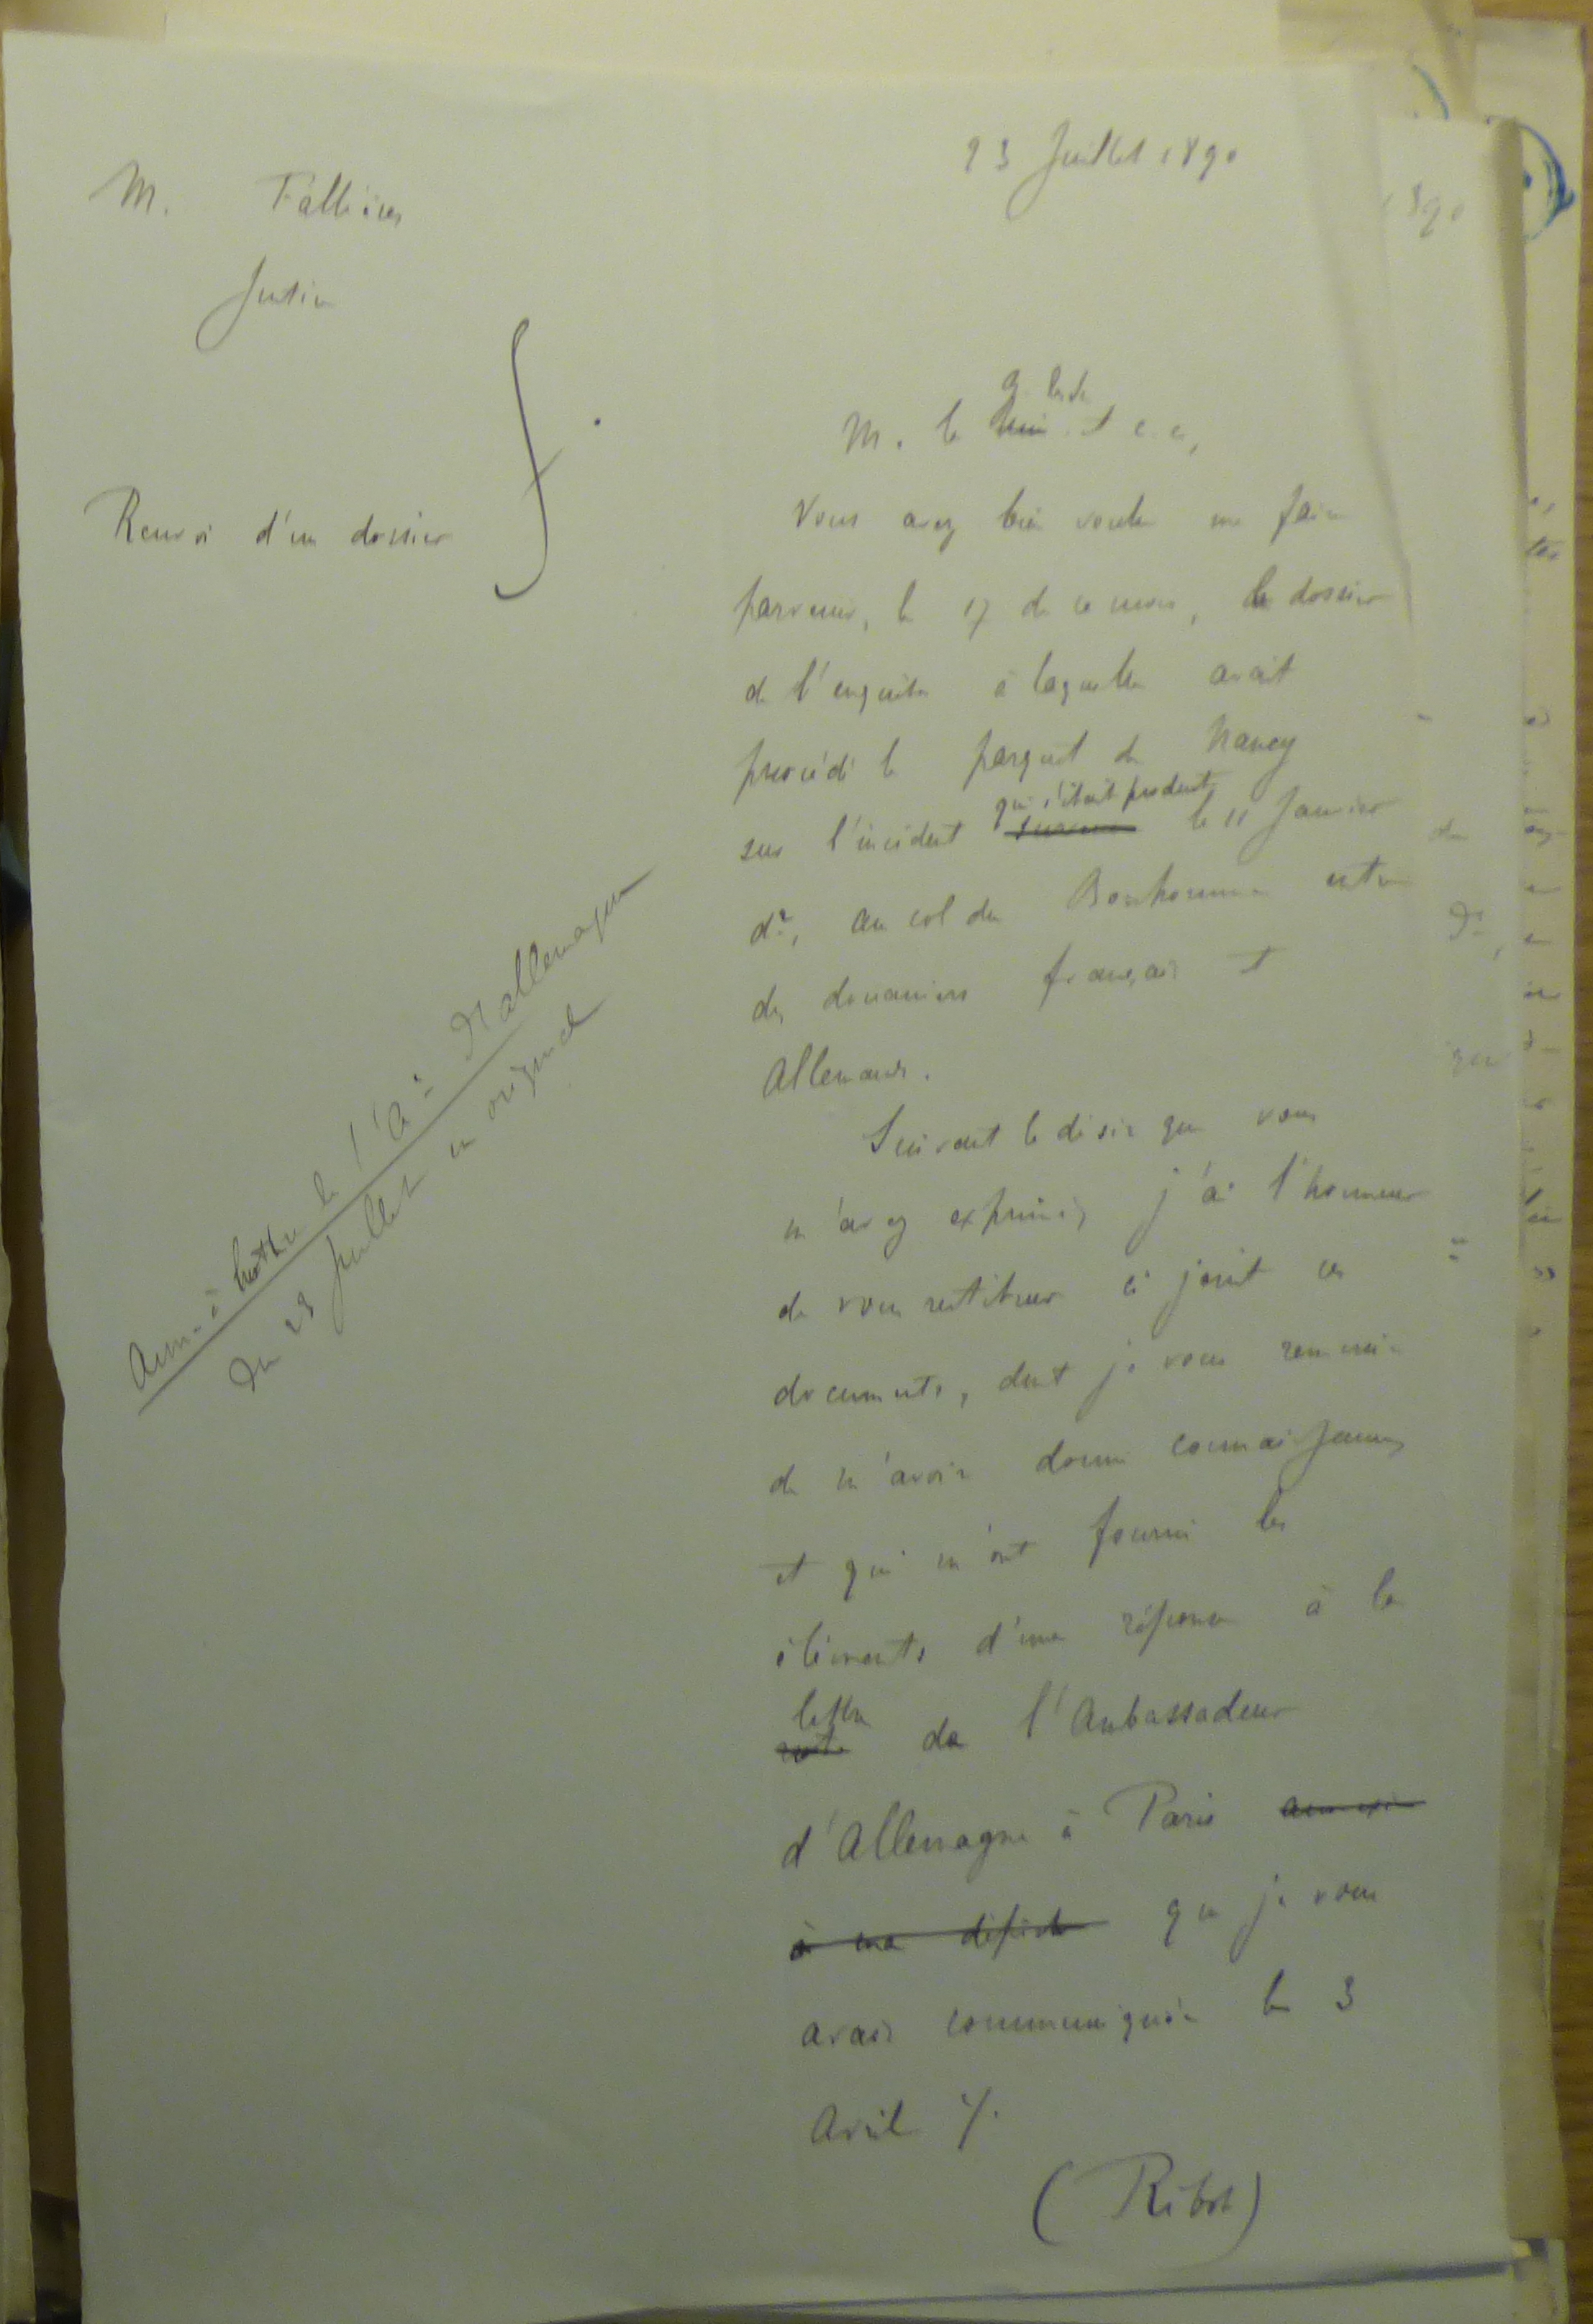 23 Juillet 1890
M. Fallières
Justice
Renvoi d'un dossier
M. le G. des Sc. etc.,
Vous avez bien voulu me faire
parvenir, le 17 de ce mois, le dossier
de l'enquête à laquelle avait
procédé le parquet de Nancy
qui s'était produit
sur l'incident survenu le 11 Janvier
dr, au col du Bonhomme entre
des douaniers français et
Allemands.
Suivant le désir que vous
m'avez exprimé, j'ai l'honneur
de vous restituer ci joint ces
documents, dont je vous remercie
de m'avoir donné connaissance
et qui m'ont fourni les
éléments d'une réponse à la
lettre
note de l'Ambassadeur
d'Allemagne à Paris annexée
à ma dépêche que je vous
avais communiquée le 3
Avril
(Ribot)
lettre de l'Ar d'Allemagne
du 23 Juillet en original
1890